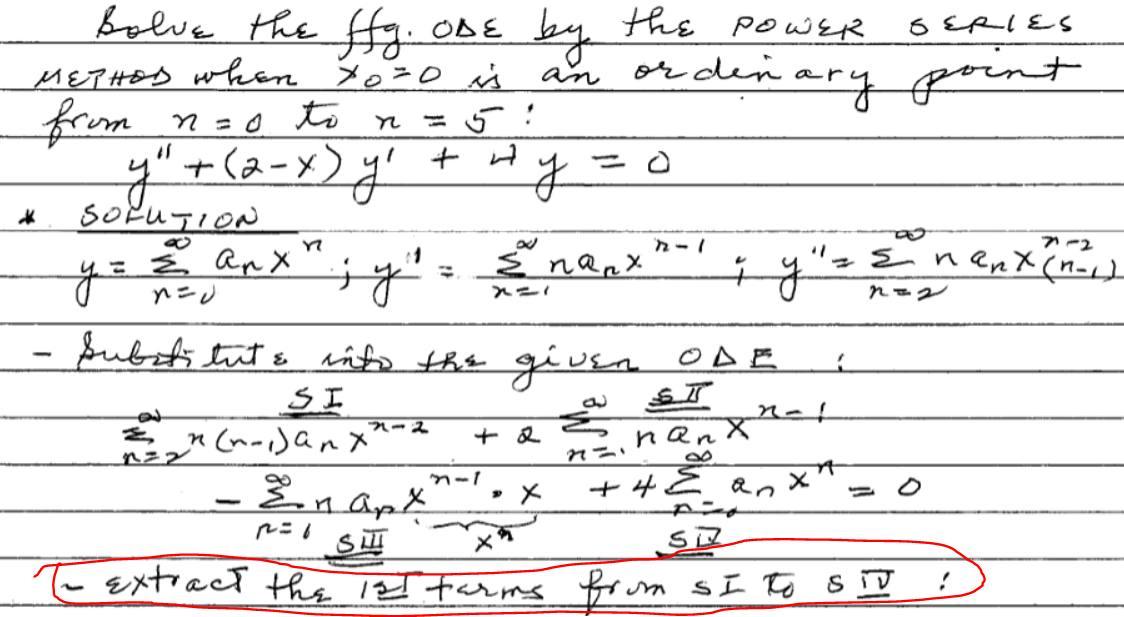 Solve the ffg. ODE by the POWER SERIES
METHOD when x₀=0 is an ordinary point
from n=0 to n=5:
y'' + (2-x) y' + 4y = 0
* SOLUTION
y = Σ_{n=0}^{∞} aₙxⁿ ; y' = Σ_{n=1}^{∞} naₙxⁿ⁻¹ ; y'' = Σ_{n=2}^{∞} n aₙxⁿ⁻²(n-1)
- Substitute into the given ODE :
SI SII
Σ_{n=2}^{∞} n(n-1)aₙxⁿ⁻² + 2 Σ_{n=1}^{∞} naₙxⁿ⁻¹
- Σ_{n=1}^{∞} n aₙxⁿ⁻¹ · x + 4 Σ_{n=0}^{∞} aₙxⁿ = 0
SIII xⁿ SIV
- extract the 1st terms from SI to SIV :